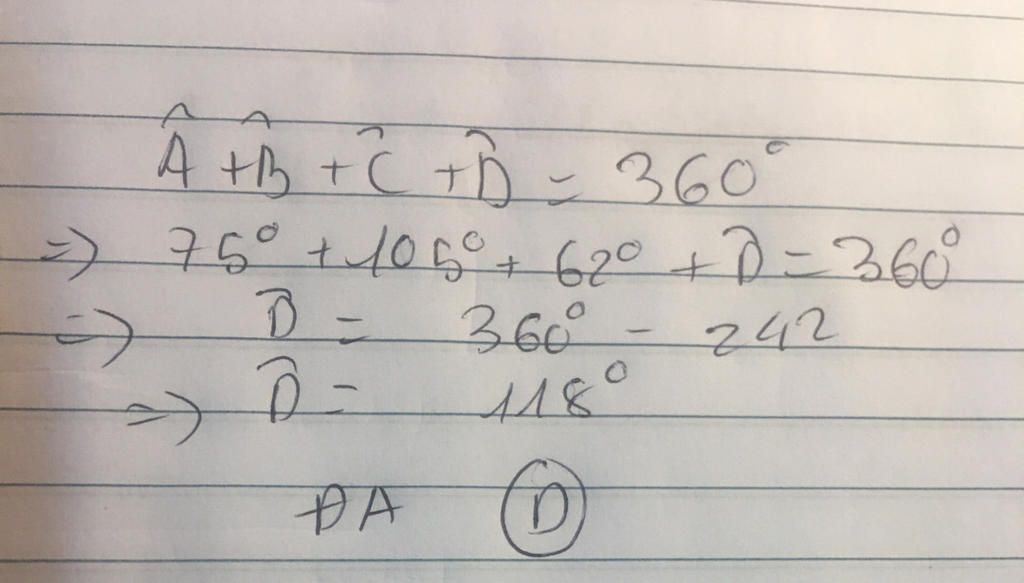 Â + B̂ + Ĉ + D̂ = 360°
=> 75° + 105° + 62° + D̂ = 360°
=> D̂ = 360° - 242
=> D̂ = 118°
ĐA D